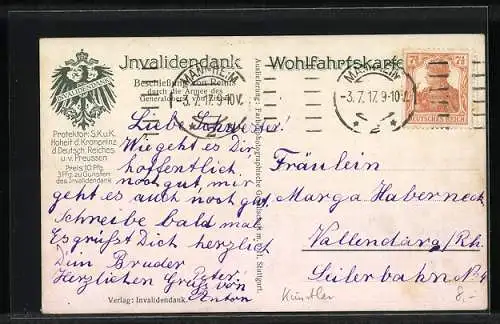 Invalidendank
INVALIDENDANK
Protektor: S.K.u.K.
Hoheit d. Kronprinz
d. Deutsch. Reiches
u.v. Preussen
Preis 10 Pfg.
3 Pfg. zu Gunsten
des Invalidendank
Beschießung von Reims
durch die Armee des
Generaloberst von
Wohlfahrtskarte
MANNHEIM
-3.7.17. 9-10V.
2
MANNHEIM
-3.7.17. 9-10V.
2
7½ 7½
DEUTSCHES REICH
Auslieferung: Farbenphotographische Gesellschaft m. b. H. Stuttgart.
Liebe Schwester!
Wie geht es Dir,
hoffentlich
noch gut, mir
geht es auch noch gut
Schreibe bald mal
Es grüßt Dich herzlich
Dein Bruder
Peter.
Herzlichen Gruß von
Anton
Verlag: Invalidendank
Fräulein
Marga Haberneck
Vallendar a/Rh.
Seilerbahn No 4
Künstler
8.-